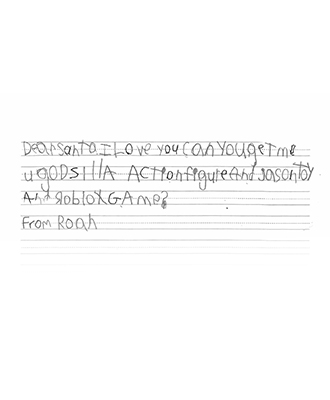 Dear santa I Love you can you get me
u gODSIllA ACTionfigure And Jason toy
And RobloxGAme?
From Roah